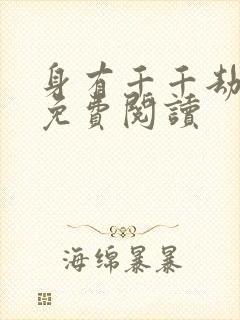 身有千千劫
免費閱讀
海绵暴暴